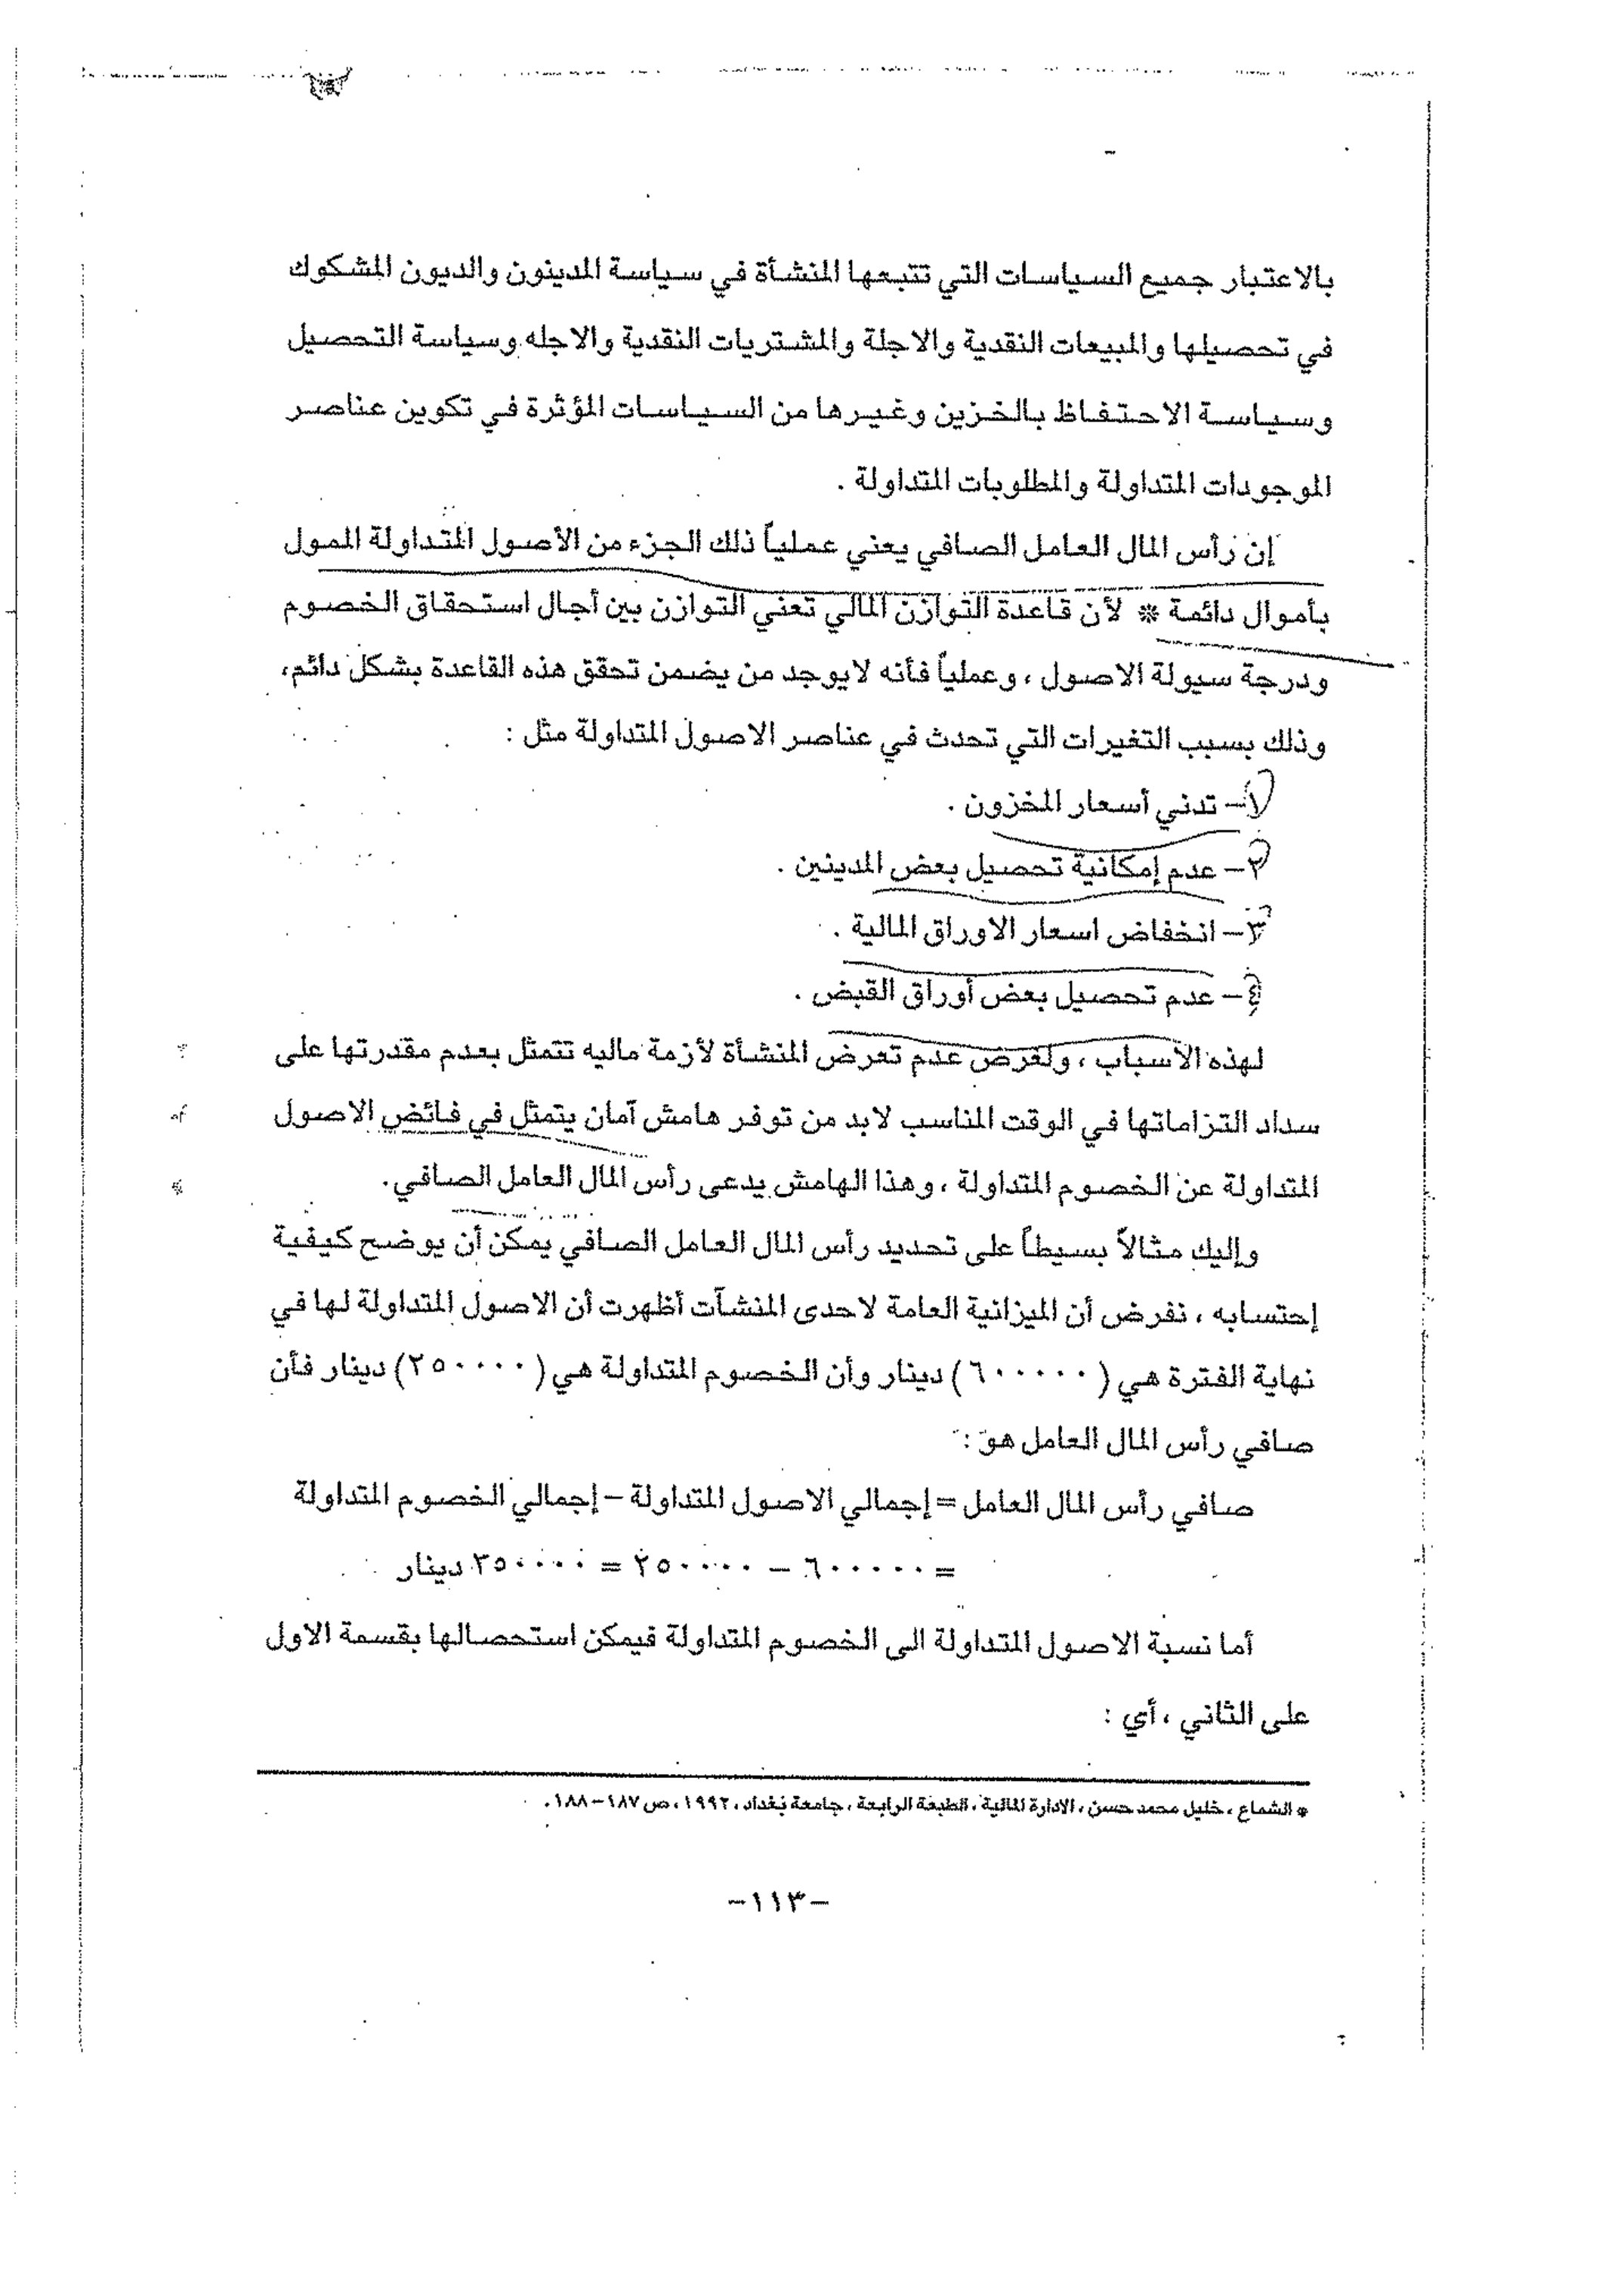 بالاعتبار جميع السياسات التي تتبعها المنشأة في سياسة المدينون والديون المشكوك
في تحصيلها والمبيعات النقدية والاجلة والمشتريات النقدية والاجله وسياسة التحصيل
وسياسة الاحتفاظ بالخزين وغيرها من السياسات المؤثرة في تكوين عناصر
الموجودات المتداولة والمطلوبات المتداولة .
إن رأس المال العامل الصافي يعني عملياً ذلك الجزء من الأصول المتداولة الممول
بأموال دائمة * لأن قاعدة التوازن المالي تعني التوازن بين أجال استحقاق الخصوم
ودرجة سيولة الاصول ، وعملياً فأنه لايوجد من يضمن تحقق هذه القاعدة بشكل دائم،
وذلك بسبب التغيرات التي تحدث في عناصر الاصول المتداولة مثل :
١- تدني أسعار المخزون .
٢- عدم إمكانية تحصيل بعض المدينين .
٣- انخفاض اسعار الاوراق المالية .
٤- عدم تحصيل بعض أوراق القبض .
لهذه الأسباب ، ولغرض عدم تعرض المنشأة لأزمة ماليه تتمثل بعدم مقدرتها على
سداد التزاماتها في الوقت المناسب لابد من توفر هامش آمان يتمثل في فائض الاصول
المتداولة عن الخصوم المتداولة ، وهذا الهامش يدعى رأس المال العامل الصافي.
وإليك مثالاً بسيطاً على تحديد رأس المال العامل الصافي يمكن أن يوضح كيفية
إحتسابه ، نفرض أن الميزانية العامة لاحدى المنشآت أظهرت أن الاصول المتداولة لها في
نهاية الفترة هي (٦٠٠٠٠٠) دينار وأن الخصوم المتداولة هي (٢٥٠٠٠٠) دينار فأن
صافي رأس المال العامل هو :
صافي رأس المال العامل = إجمالي الاصول المتداولة – إجمالي الخصوم المتداولة
= ٦٠٠٠٠٠ – ٢٥٠٠٠٠ = ٣٥٠٠٠٠ دينار
أما نسبة الاصول المتداولة الى الخصوم المتداولة فيمكن استحصالها بقسمة الاول
على الثاني ، أي :
* الشماع ، خليل محمد حسن ، الادارة المالية ، الطبعة الرابعة ، جامعة بغداد ، ١٩٩٢ ، ص ١٨٧-١٨٨.
-١١٣-